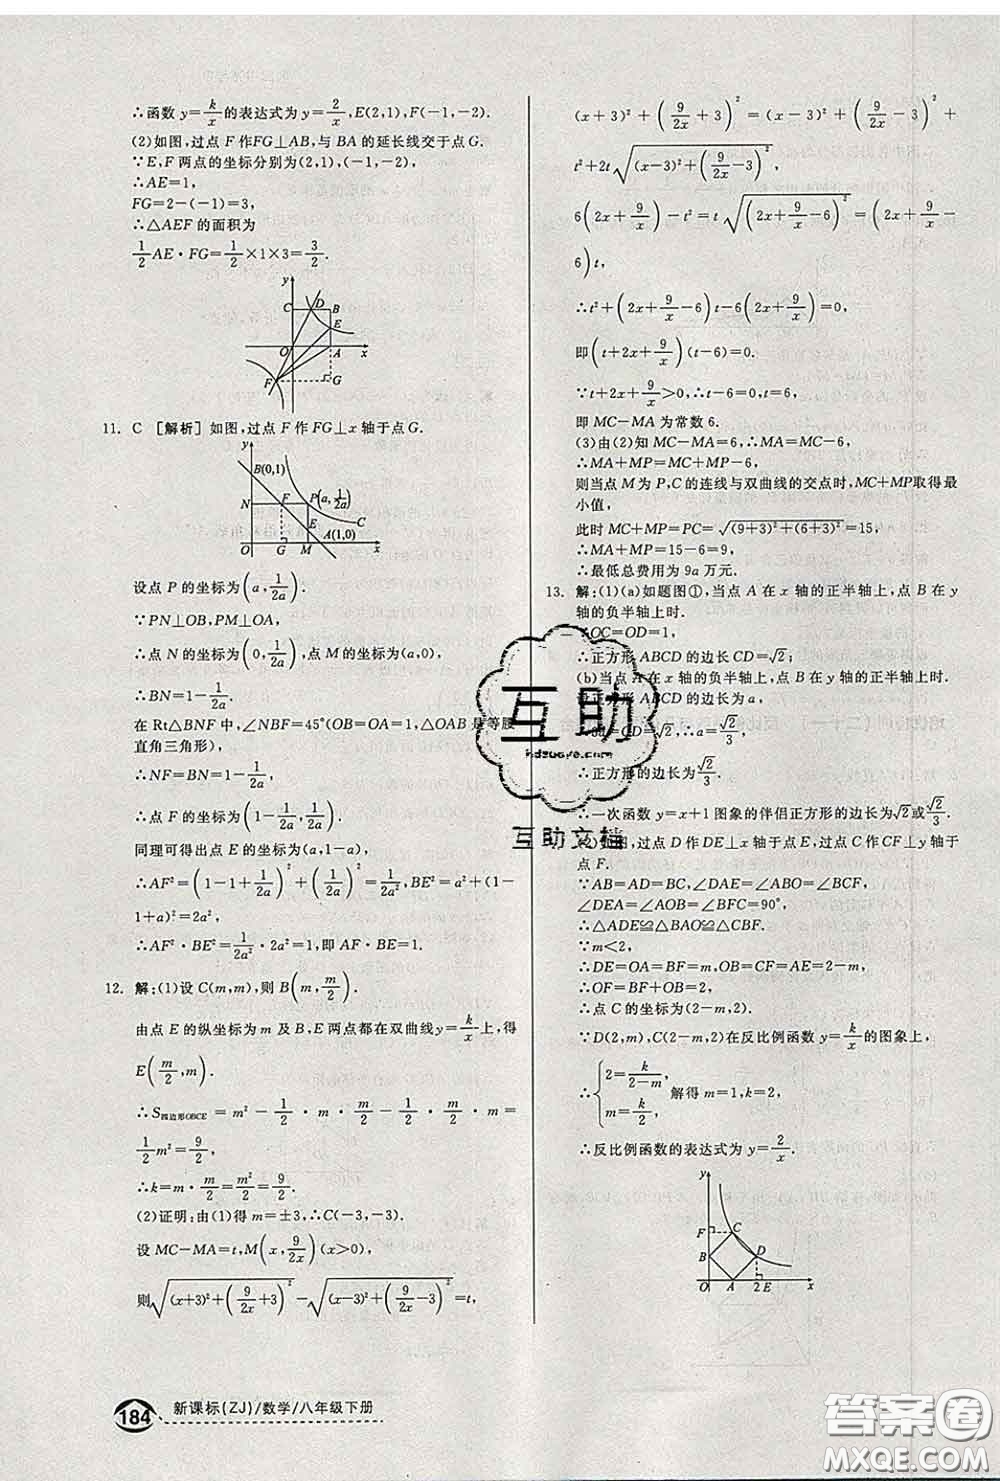 ∴函数 y=k/x 的表达式为 y=2/x,E(2,1),F(-1,-2).
(2)如图,过点 F 作FG⊥AB,与 BA 的延长线交于点G.
∵E,F 两点的坐标分别为(2,1),(-1,-2),
∴AE=1,
FG=2-(-1)=3,
∴△AEF 的面积为
1/2 AE·FG=1/2×1×3=3/2.
y
C D B
E
O A x
F G
11. C [解析] 如图,过点 F 作 FG⊥x 轴于点 G.
y
B(0,1)
N F P(a,1/2a)
E C
A(1,0)
O G M x
设点 P 的坐标为(a,1/2a).
∵PN⊥OB,PM⊥OA,
∴点 N 的坐标为(0,1/2a),点 M 的坐标为(a,0),
∴BN=1-1/2a.
在 Rt△BNF 中,∠NBF=45°(OB=OA=1,△OAB 是等腰
直角三角形),
∴NF=BN=1-1/2a,
∴点 F 的坐标为(1-1/2a,1/2a).
同理可得出点 E 的坐标为(a,1-a),
∴AF²=(1-1+1/2a)²+(1/2a)²=1/2a²,BE²=a²+(1-
1+a)²=2a²,
∴AF²·BE²=1/2a²·2a²=1,即 AF·BE=1.
12. 解:(1)设 C(m,m),则 B(m,m/2).
由点 E 的纵坐标为 m 及 B,E 两点都在双曲线 y=k/x 上,得
E(m/2,m).
∴S四边形OBCE=m²-1/2·m·m/2-1/2·m·m/2=
1/2 m²=9/2.
∴k=m·m/2=m²/2=9/2.
(2)证明:由(1)得 m=±3,∴C(-3,-3).
设 MC-MA=t,M(x,9/2x)(x>0),
则√((x+3)²+(9/2x+3)²)-√((x-3)²+(9/2x-3)²)=t,
(x+3)²+(9/2x+3)²=(x-3)²+(9/2x-3)²+
t²+2t√((x-3)²+(9/2x-3)²),
6(2x+9/x)-t²=t√((2x+9/x-6)²)=(2x+9/x-
6)t,
∴t²+(2x+9/x-6)t-6(2x+9/x)=0,
即(t+2x+9/x)(t-6)=0.
∵t+2x+9/x>0,∴t-6=0,∴t=6,
即 MC-MA 为常数 6.
(3)由(2)知 MC-MA=6,∴MA=MC-6,
∴MA+MP=MC+MP-6,
则当点 M 为 P,C 的连线与双曲线的交点时,MC+MP取得最
小值,
此时 MC+MP=PC=√((9+3)²+(6+3)²)=15,
∴MA+MP=15-6=9,
∴最低总费用为 9a 万元.
13. 解:(1)(a)如题图①,当点 A 在 x 轴的正半轴上,点 B 在 y
轴的负半轴上时.
∴OC=OD=1,
∴正方形 ABCD 的边长 CD=√2;
(b)当点 A 在 x 轴的负半轴上,点 B 在 y 轴的正半轴上时.
设正方形 ABCD 的边长为 a,
∴3a=CD=√2,∴a=√2/3,
∴正方形的边长为√2/3.
∴一次函数 y=x+1 图象的伴侣正方形的边长为√2或√2/3.
(2)如图,过点 D 作 DE⊥x 轴于点 E,过点 C 作 CF⊥y 轴于
点 F.
∵AB=AD=BC,∠DAE=∠ABO=∠BCF,
∠DEA=∠AOB=∠BFC=90°,
∴△ADE≌△BAO≌△CBF.
∵m<2,
∴DE=OA=BF=m,OB=CF=AE=2-m,
∴OF=BF+OB=2,
∴点 C 的坐标为(2-m,2).
∵D(2,m),C(2-m,2)在反比例函数 y=k/x 的图象上,
∴{2=k/(2-m), m=k/2, 解得 m=1,k=2,
∴反比例函数的表达式为 y=2/x.
y
F C
B D
O A 2 E x
互助
hdzuoye.com
互助文档
184 新课标(ZJ)/数学/八年级下册
答案圈
MXQE.COM